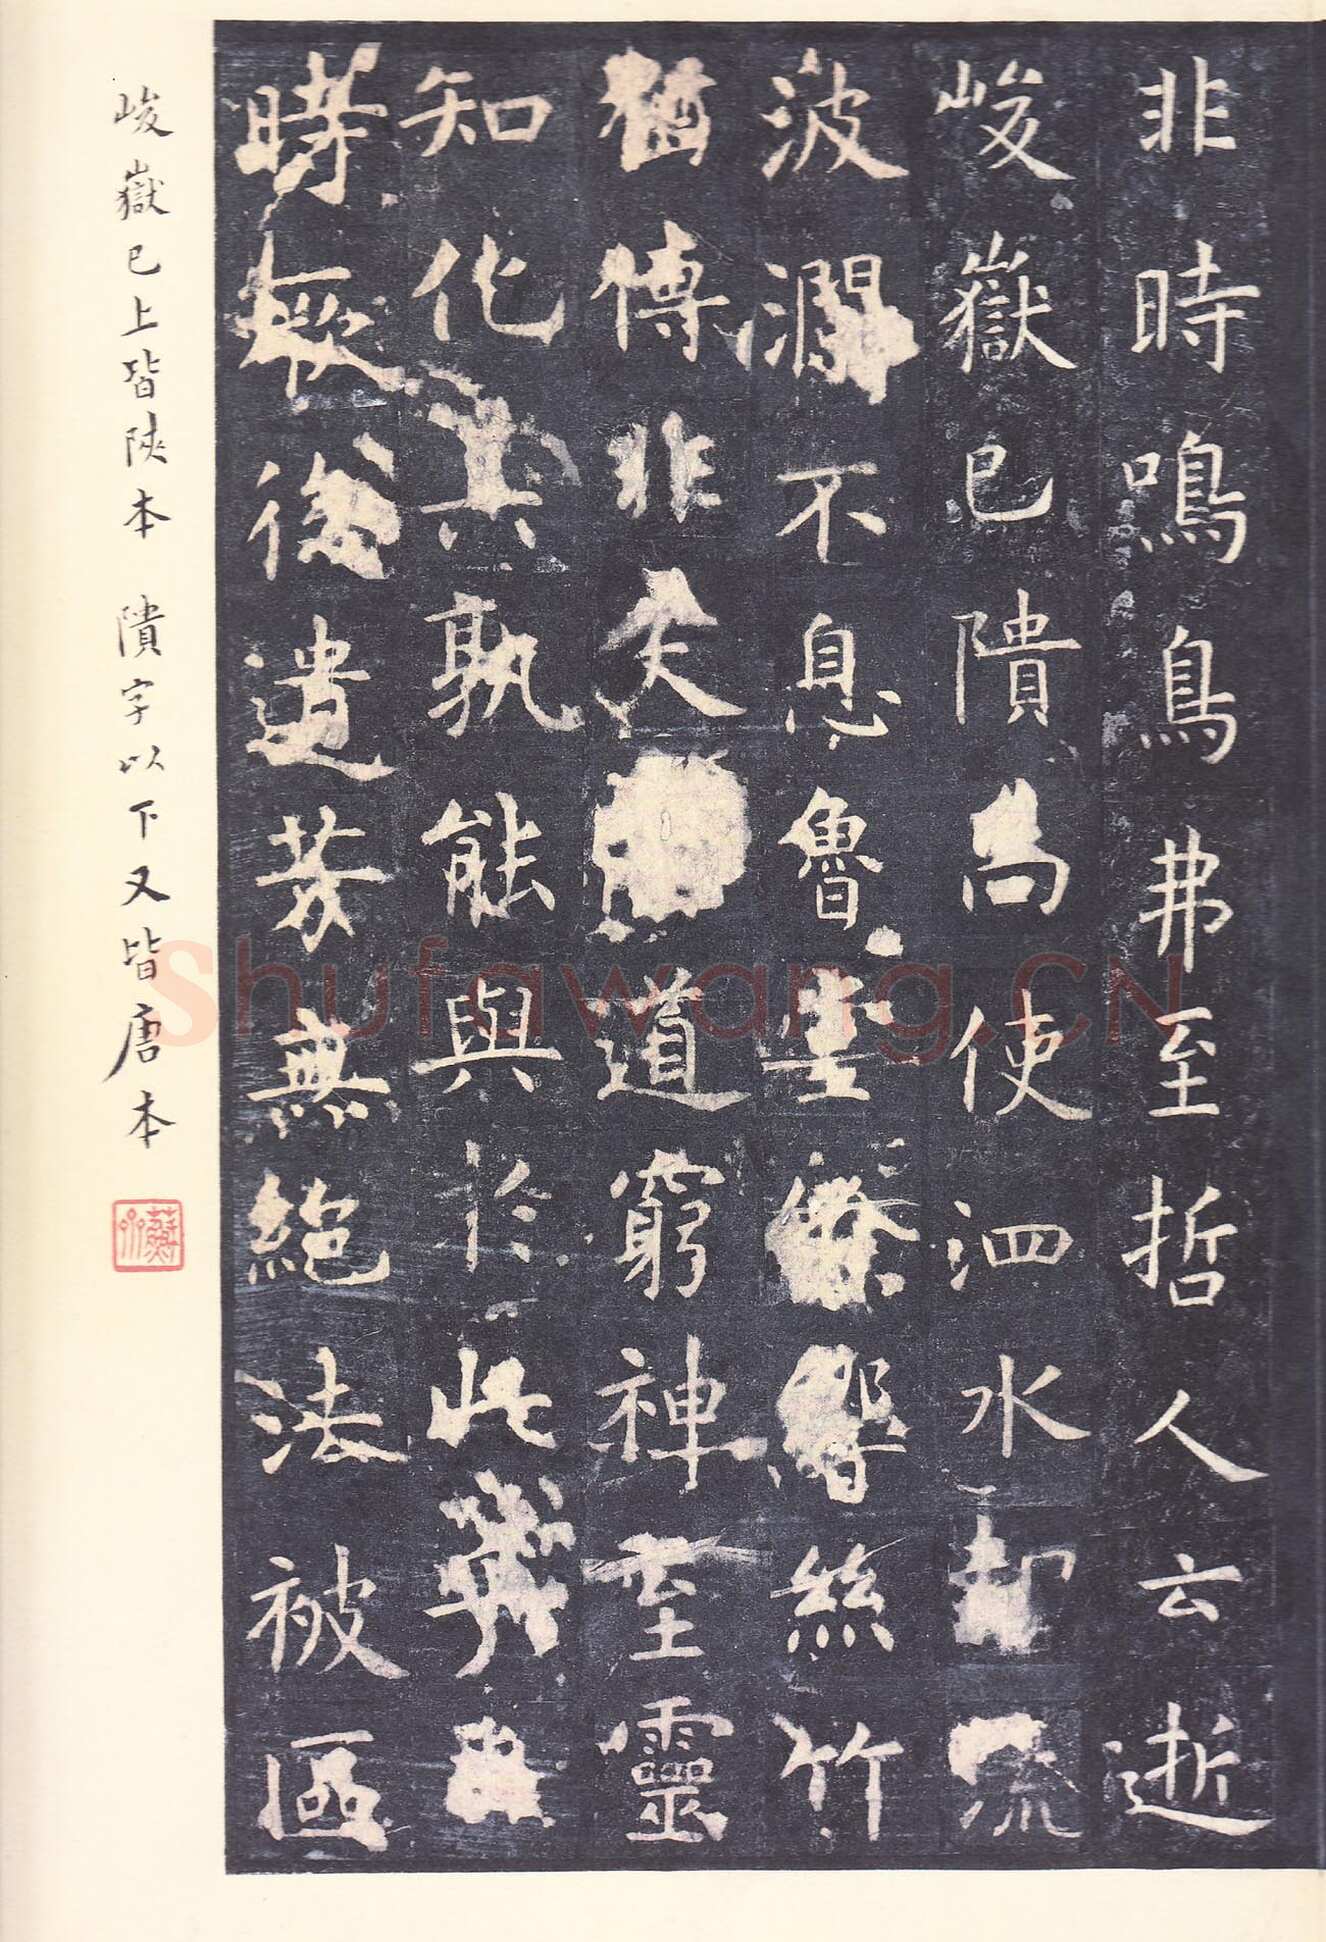 非時鳴鳥弗至哲人云逝
峻嶽已隤尚使泗水却流
波瀾不息魯堂餘響絲竹
猶傳非夫道窮神至靈
知化其孰能與於此
時無後遺芳無絕法被區
峻嶽已上皆陝本 隤字以下又皆唐本
Shufawang.CN